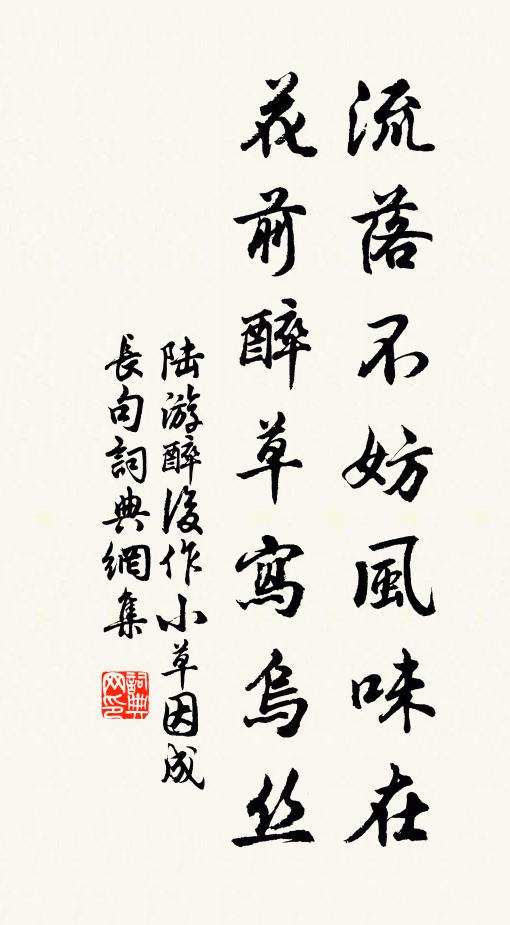 流落不妨風味在
花前醉草寫烏丝
陆游醉後作小草因成
長句詞典網集
詞典
网印